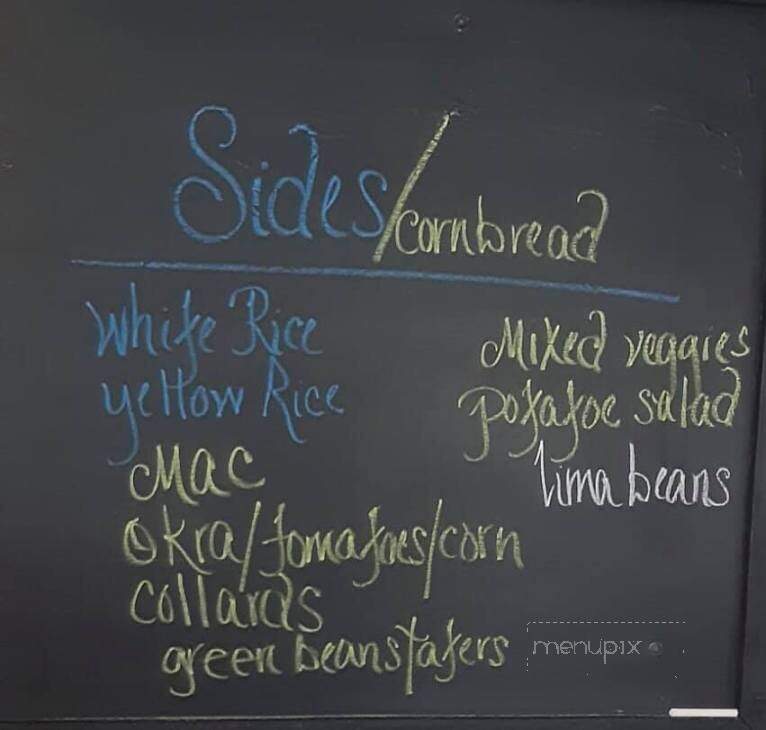 Sides/cornbread
White Rice
yellow Rice
Mac
Okra/tomatoes/corn
Collards
green beans/taters
Mixed veggies
potatoe salad
lima beans
menupix